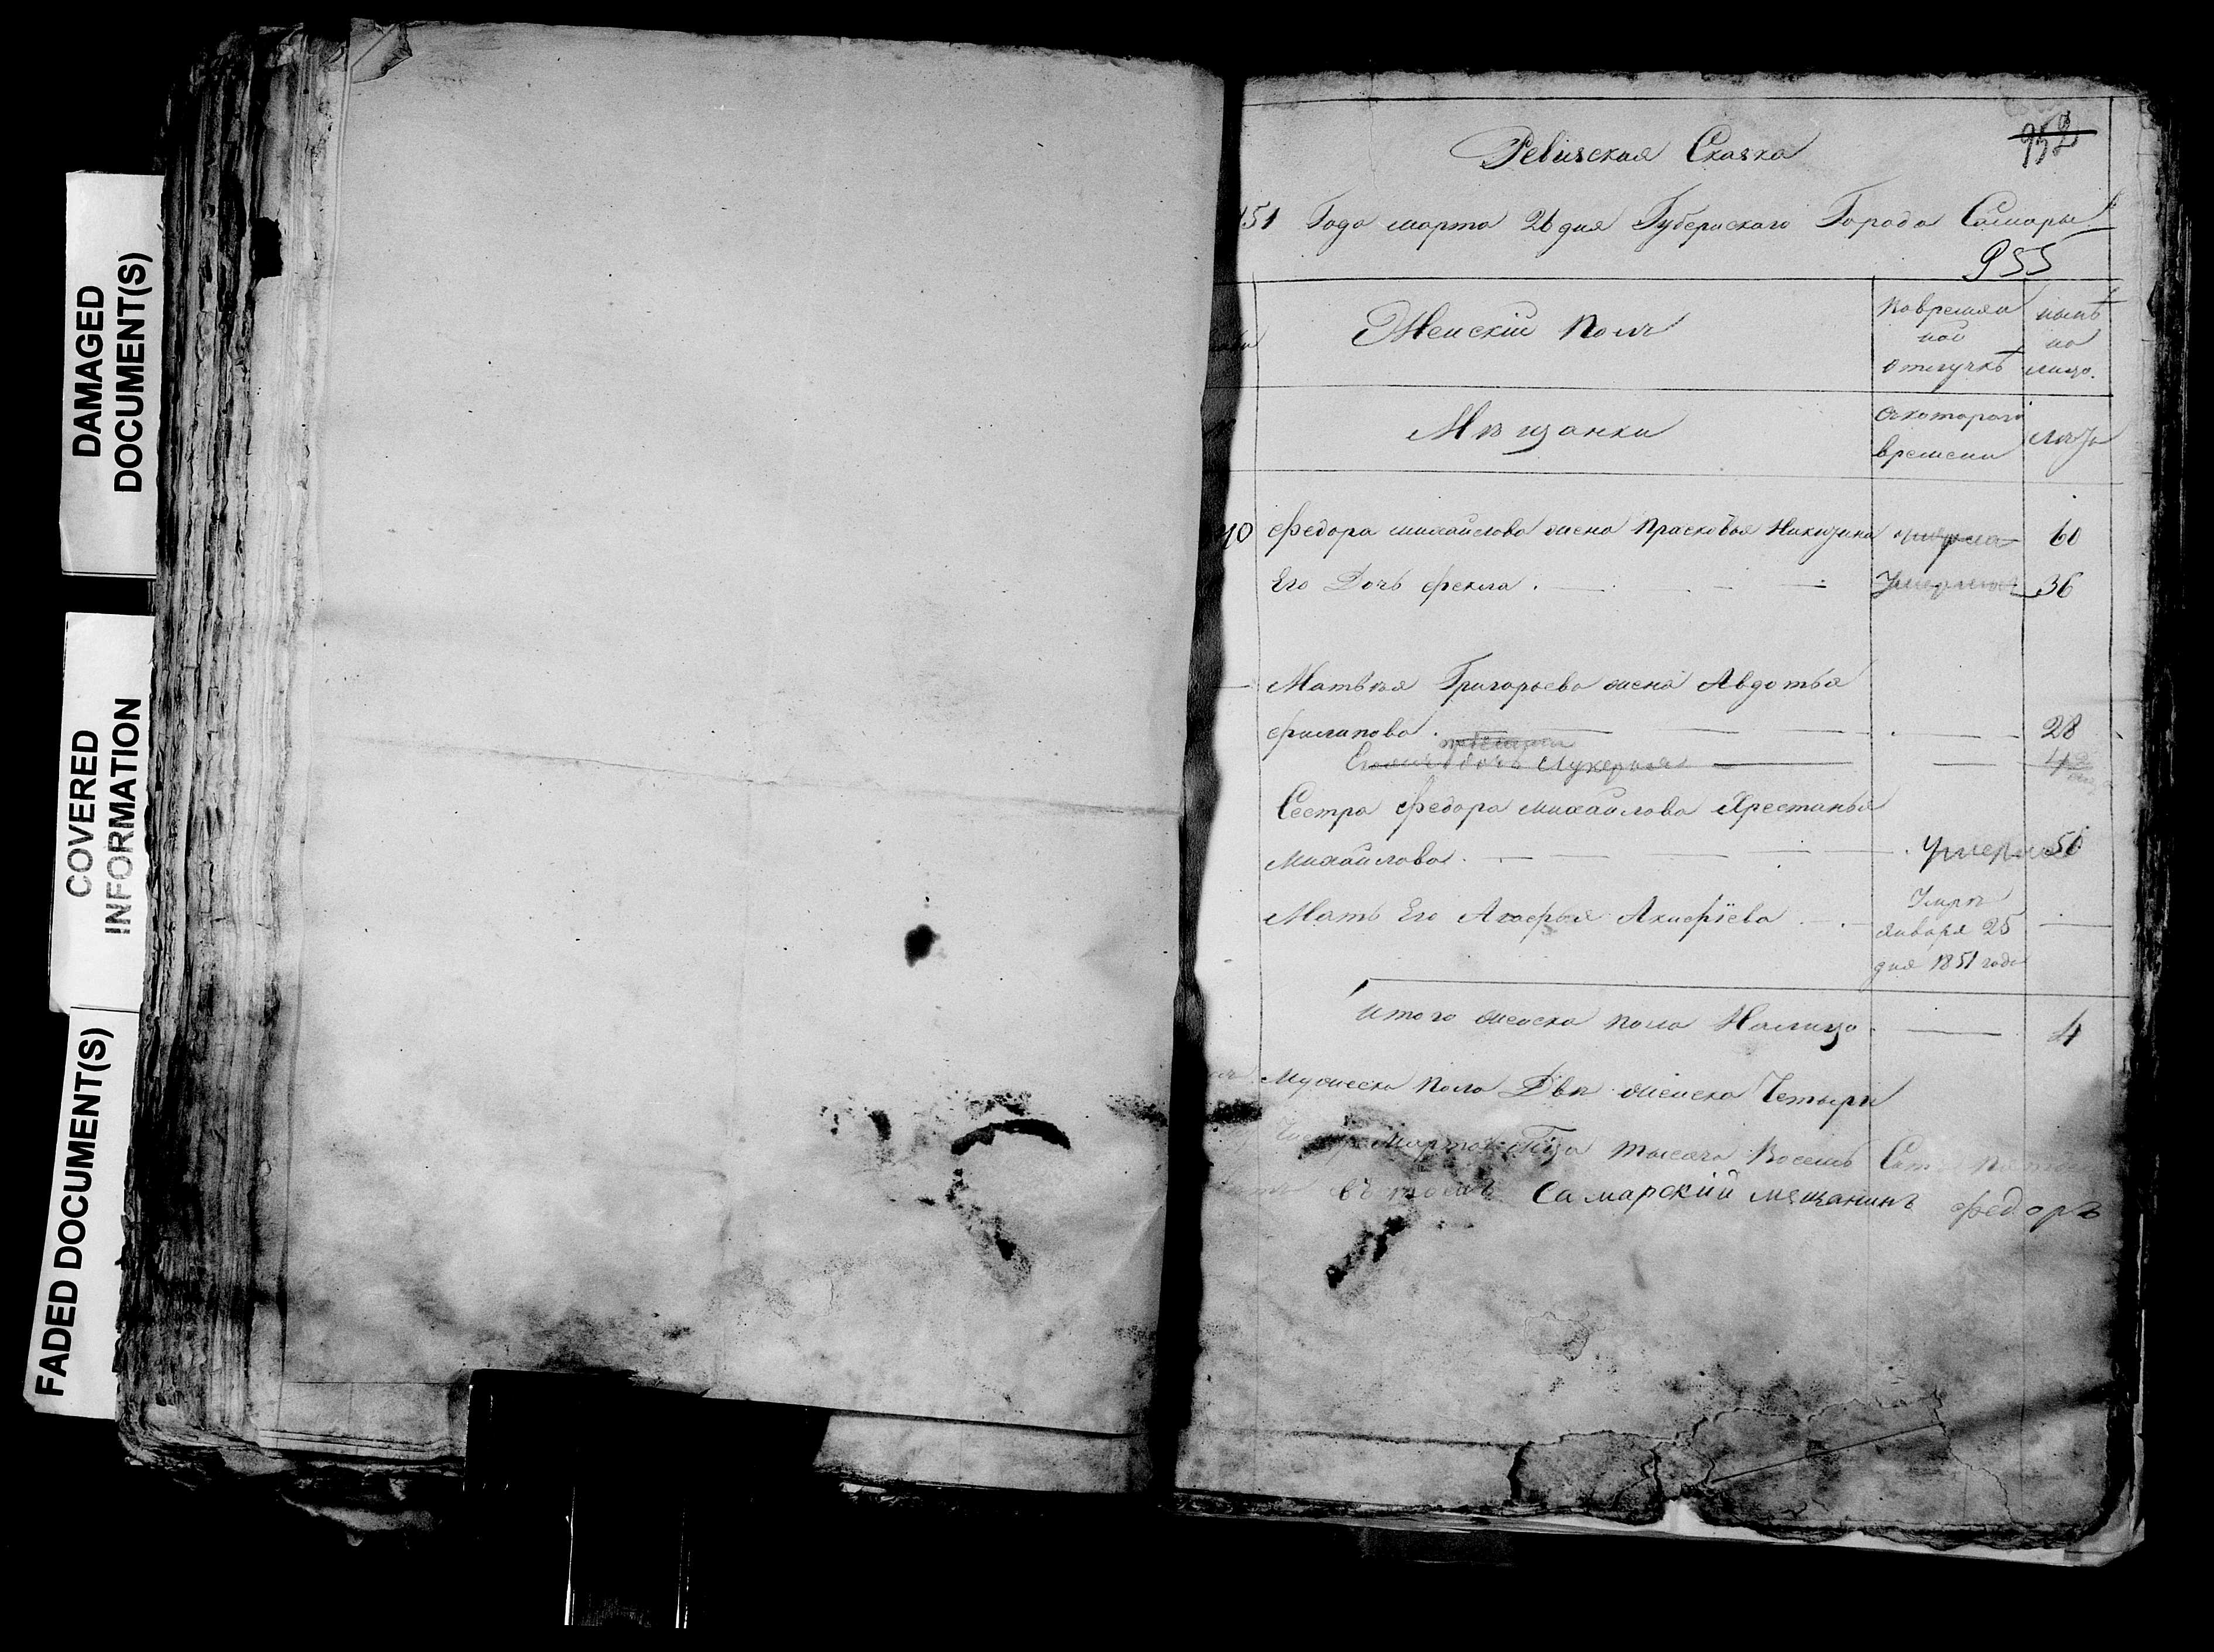 DAMAGED
DOCUMENT(S)
COVERED
INFORMATION
FADED DOCUMENT(S)
952
Ревизская Сказка
151 Года марта 26 дня Губернскаго Города Самары
955
Женскій Полъ
во времян
ной
отлучкѣ
нынѣ
на
лицо.
Мѣщанки
съ котораго
времени
лѣта
40 Федора михайлова жена Прасковья Никитина умерла 60
Его Дочь фекла . — Умерла 36
Матвѣя Григорьева жена Авдотья
филипова . — 28
дочь Лукерья —
Сестра Федора михайлова Хрестинья
Михайлова . — умерла 50
Мать Его Агафья Акифіева . —
Умре
Января 25
дня 1851 года
итого женска пола Налицо . — 4
мужеска пола Двѣ женска Четыри
Марта тысяча Восемь Сотъ
въ томъ Самарский мещанинъ федоръ